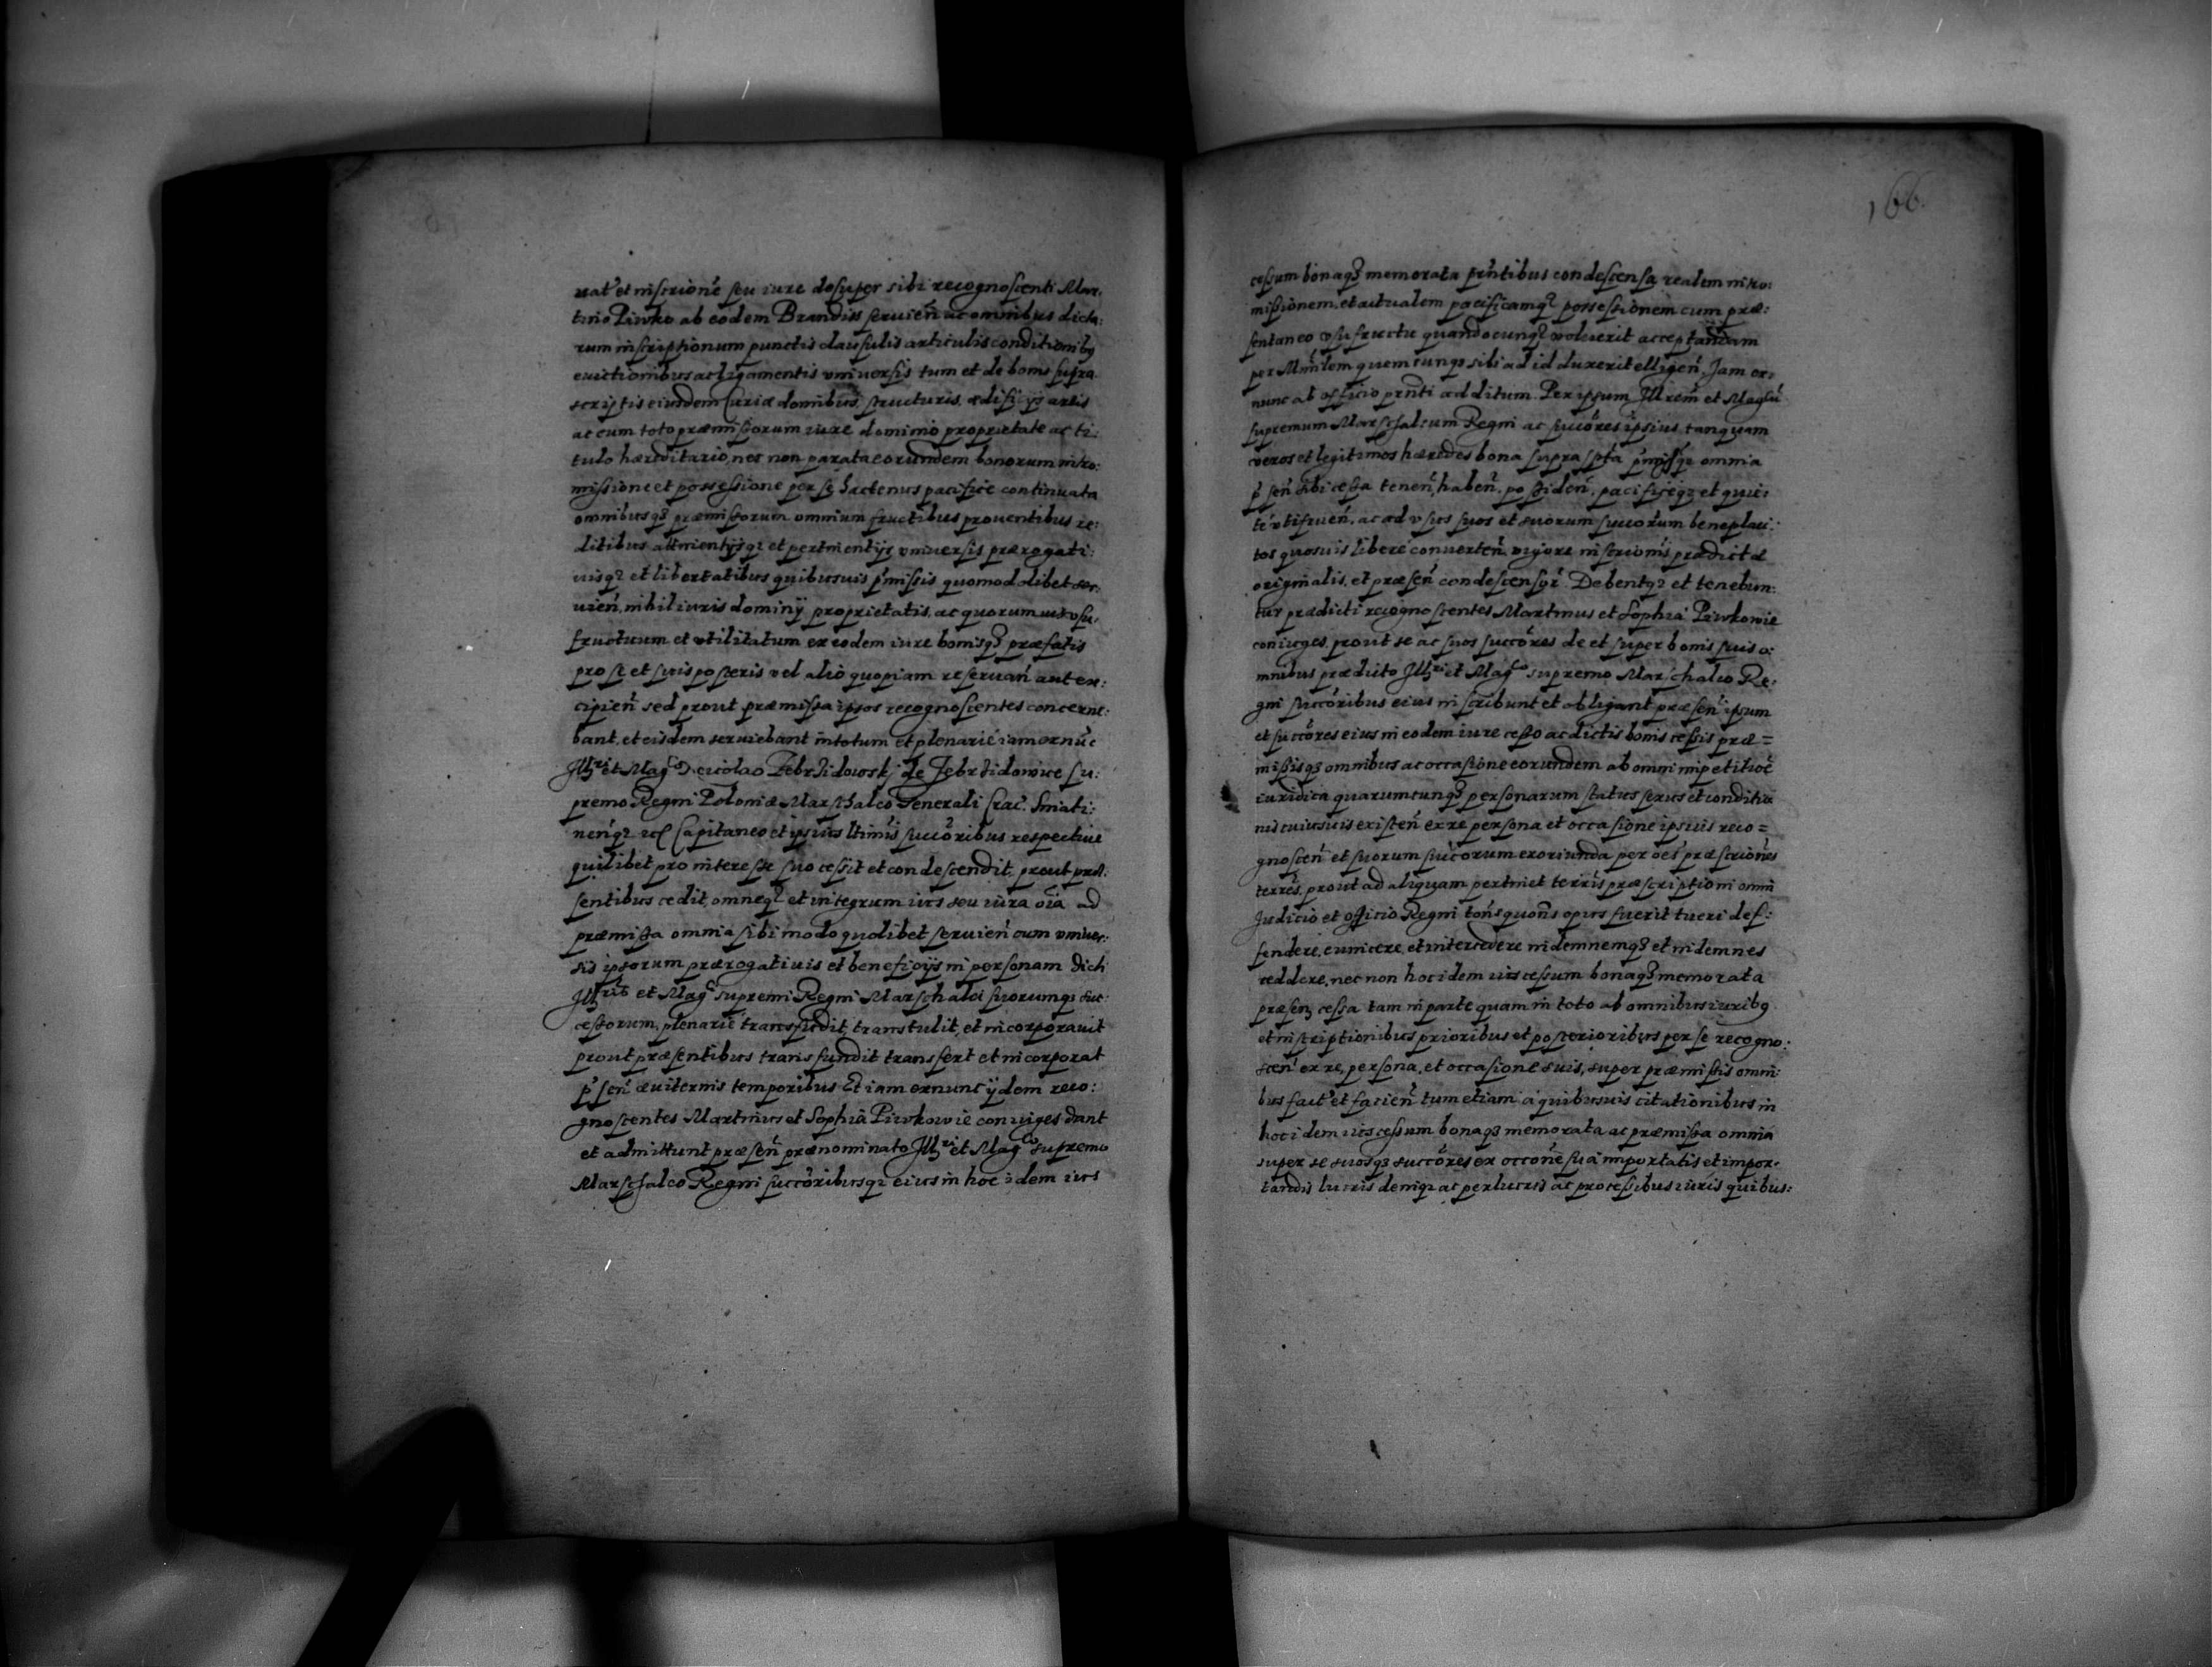 uat' et inscrione seu iure desuper sibi recognoscenti Mar:
tino Piwko ab eodem Brandiss seruien ac omnibus dicta:
rum inscriptionum punctis clausulis articulis conditionibq
euictionibus ac ligamentis vniuersis tum et de bonis supra
scriptis eiusdem Curiæ domibus, structuris, ædificijs areis
ac cum toto præmissorum iure dominio proprietate ac ti:
tulo hæreditario, nec non parata eorundem bonorum intro:
missione et possessione per se hactenus pacifice continuata
omnibusq3 præmissorum omnium fructibus prouentibus re:
ditibus attinentijsq3 et pertinentijs vniuersis prærogati:
uisq3 et libertatibus quibusuis p̃missis quomodolibet ser:
uien, nihil iuris dominij proprietatis, ac quorumuis vsu:
fructuum et vtilitatum ex eodem iure bonisq3 præfatis
pro se et suis posteris vel alio quopiam reseruan aut ex:
cipien sed prout præmissa ipsos recognoscentes concerne:
bant, et eisdem seruiebant in totum et plenarie iam exnuc
Illri et Magco Nicolao Zebrzidowskj de Zebrzidowice Su:
premo Regni Poloniæ Marschalco Generali Crac. Sniati:
nenq3 etc Capitaneo et ipsius ltimis succoribus respectiue
quilibet pro interesse suo cessit et condescendit, prout præ:
sentibus cedit, omneq3 et integrum ius seu iura oia ad
præmissa omnia sibi modo quolibet seruien cum vniuer:
sis ipsorum prærogatiuis et beneficijs in personam dicti
Illris et Magci supremi Regni Marschalci suorumq3 suc:
cessorum, plenarie transfudit, transtulit, et incorporauit
prout præsentibus transfundit transfert et incorporat
p̃sen æuiternis temporibus Et iam exnunc ijdem reco:
gnoscentes Martinus et Sophia Piwkowie coniuges dant
et admittunt præsen prænominato Illri et Magco supremo
Marschalco Regni succoribusq3 eius in hoc idem ius
166.
cessum bonaq3 memorata prntibus condescensa realem intro:
missionem, et actualem pacificamq3 possessionem cum præ:
sentaneo vsufructu quandocunq3 voluerit acceptandam
per Mnlem quemcunq3 sibi ad id duxerit elligen, Jam ex:
nunc ab officio prnti additum. Per ipsum Illrem et Magcu
supremum Marschalcum Regni ac succores ipsius, tanquam
veros et legitimos hæredes bona supra spta p̃missq3 omnia
p̃sen sibi cessa tenen, haben, possiden, pacificeq3 et quie:
te vtifruen, ac ad vsus suos et suorum succorum beneplaci:
tos quosuis libere conuerten, vigore inscrionis prædictæ
originalis, et præsen condescensqr Debentq3 et tenebun:
tur prædicti recognoscentes Martinus et Sophia Piwkowie
coniuges, prout se ac suos succores de et super bonis suis o:
mnibus prædicto Illri et Magco supremo Marschalco Re:
gni succoribus eius inscribunt et obligant præsen ipsum
et succores eius in eodem iure cesso ac dictis bonis cessis præ=
missisq3 omnibus ac occasione eorundem ab omni impetitioe
iuridica quarumcunq3 personarum status sexus et conditio
nis cuiusuis existen ex re persona et occasione ipsius reco=
gnoscen et suorum succorum exoriunda per oes præscriones
terres, prout ad aliquam pertinet terris præscriptioni omni
Judicio et officio Regni tons quons opus fuerit tueri def:
fendere, euincere, et intercedere indemnemq3 et indemnes
reddere, nec non hoc idem ius cessum bonaq3 memorata
præsen cessa tam in parte quam in toto ab omnibus iuribq
et inscriptionibus prioribus et posterioribus per se recogno:
scen ex re, persona, et occasione suis, super præmissis omni:
bus fact' et facien tum etiam a quibusuis citationibus in
hoc idem ius cessum bonaq3 memorata ac præmissa omnia
super se suosq3 succores ex occone sua importatis et impor:
tandis lucris deniq3 ac perlucris ac processibus iuris quibus: